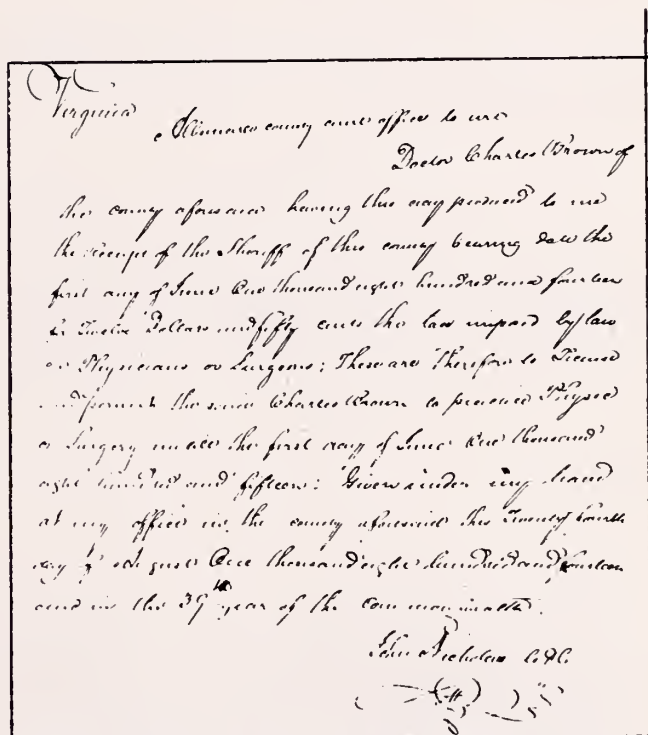 Virginia
Albemarle county court office to wit
Doctor Charles Brown of
the county aforesaid having this day produced to me
the receipt of the Sheriff of this county bearing date the
first day of June One thousand eight hundred and fourteen
for Twelve Dollars and fifty cents the tax imposed by law
on Physicians or Surgeons; These are therefore to License
and permit the said Charles Brown to practice Physic
or Surgery untill the first day of June One thousand
eight hundred and fifteen: Given under my hand
at my office in the county aforesaid this Twenty fourth
day of August One thousand eight hundred and fourteen
and in the 39th year of the commonwealth.
John Nicholas